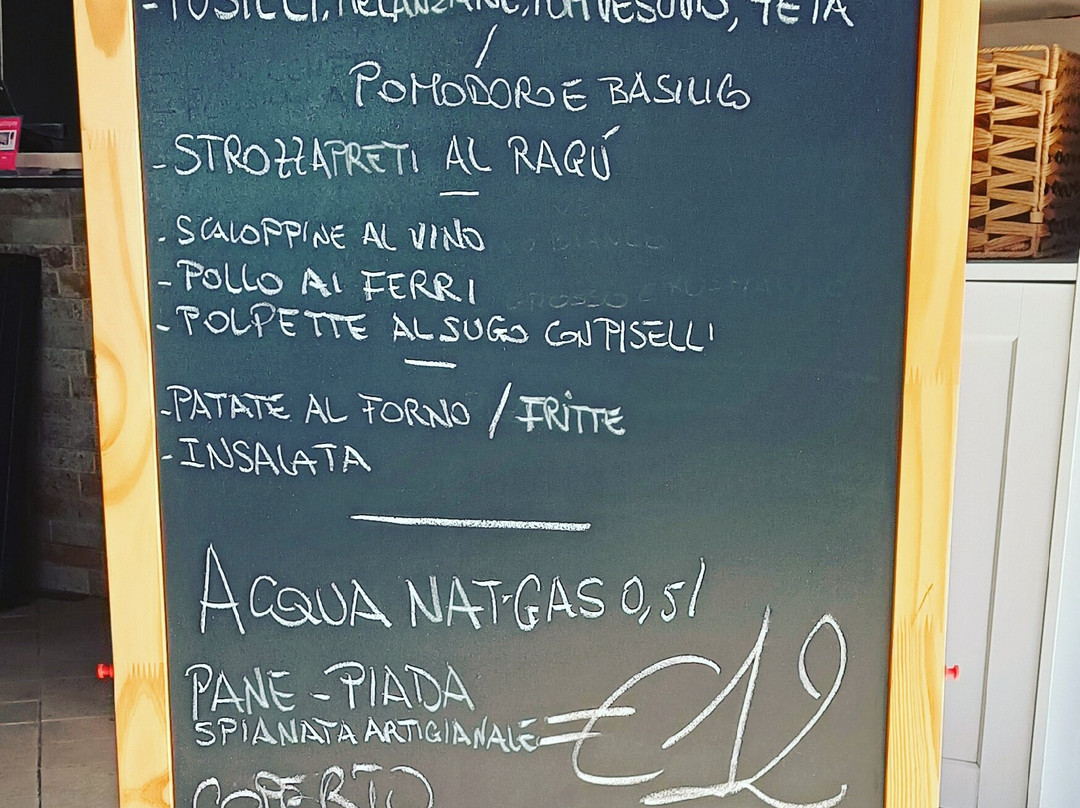 - FUSILLI, MELANZANE, POM VESUVIO, FETA
/
POMODORO E BASILICO
- STROZZAPRETI AL RAGÚ
- SCALOPPINE AL VINO
- POLLO AI FERRI
- POLPETTE AL SUGO CON PISELLI
- PATATE AL FORNO / FRITTE
- INSALATA
ACQUA NAT-GAS 0,5l
PANE - PIADA
SPIANATA ARTIGIANALE
€12
COPERTO